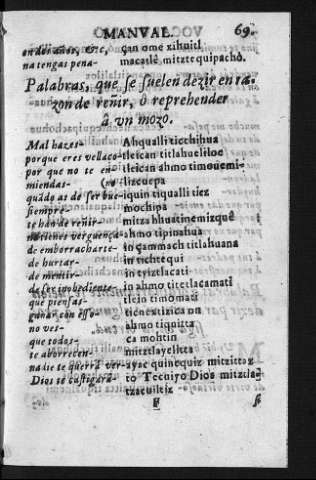 MANVAL. 69.
en dos años, etc, çan ome xihuitl,
no tengas pena- macaste mitztequipacho.
Palabras, que se suelen dezir en ra-
zon de reñir, ò reprehender
â vn moço.
Mal hazes- Ahqualli ticchihua
porque eres vellaco- tleican titlahueliloc
por que no te en- tleican ahmo timoüemi-
miendas- (no- lizcuepa
quãdo as de ser bue- iquin tiqualli tiez
siempre- mochipa
te han de reñir- mitzahhuatinemizquê
no tienes verguença- ahmo tipinahua
de emborracharte- in çammach titlahuana
de hurtar- in tichtequi
de mentir- in tiyztlacati
de ser inobediente- in ahmo titetlacamati
que piensas- tlein timomati
ganar con esso-
no ves- ahmo tiquitta
que todos- ca mohtin
te aborrecen- mitztlayelitta
nadie te querrâ ver- ayac quinequiz mitzittaz
Dios te castigarà- to Tecuiyo Dios mitztla-
tzacuiltiz